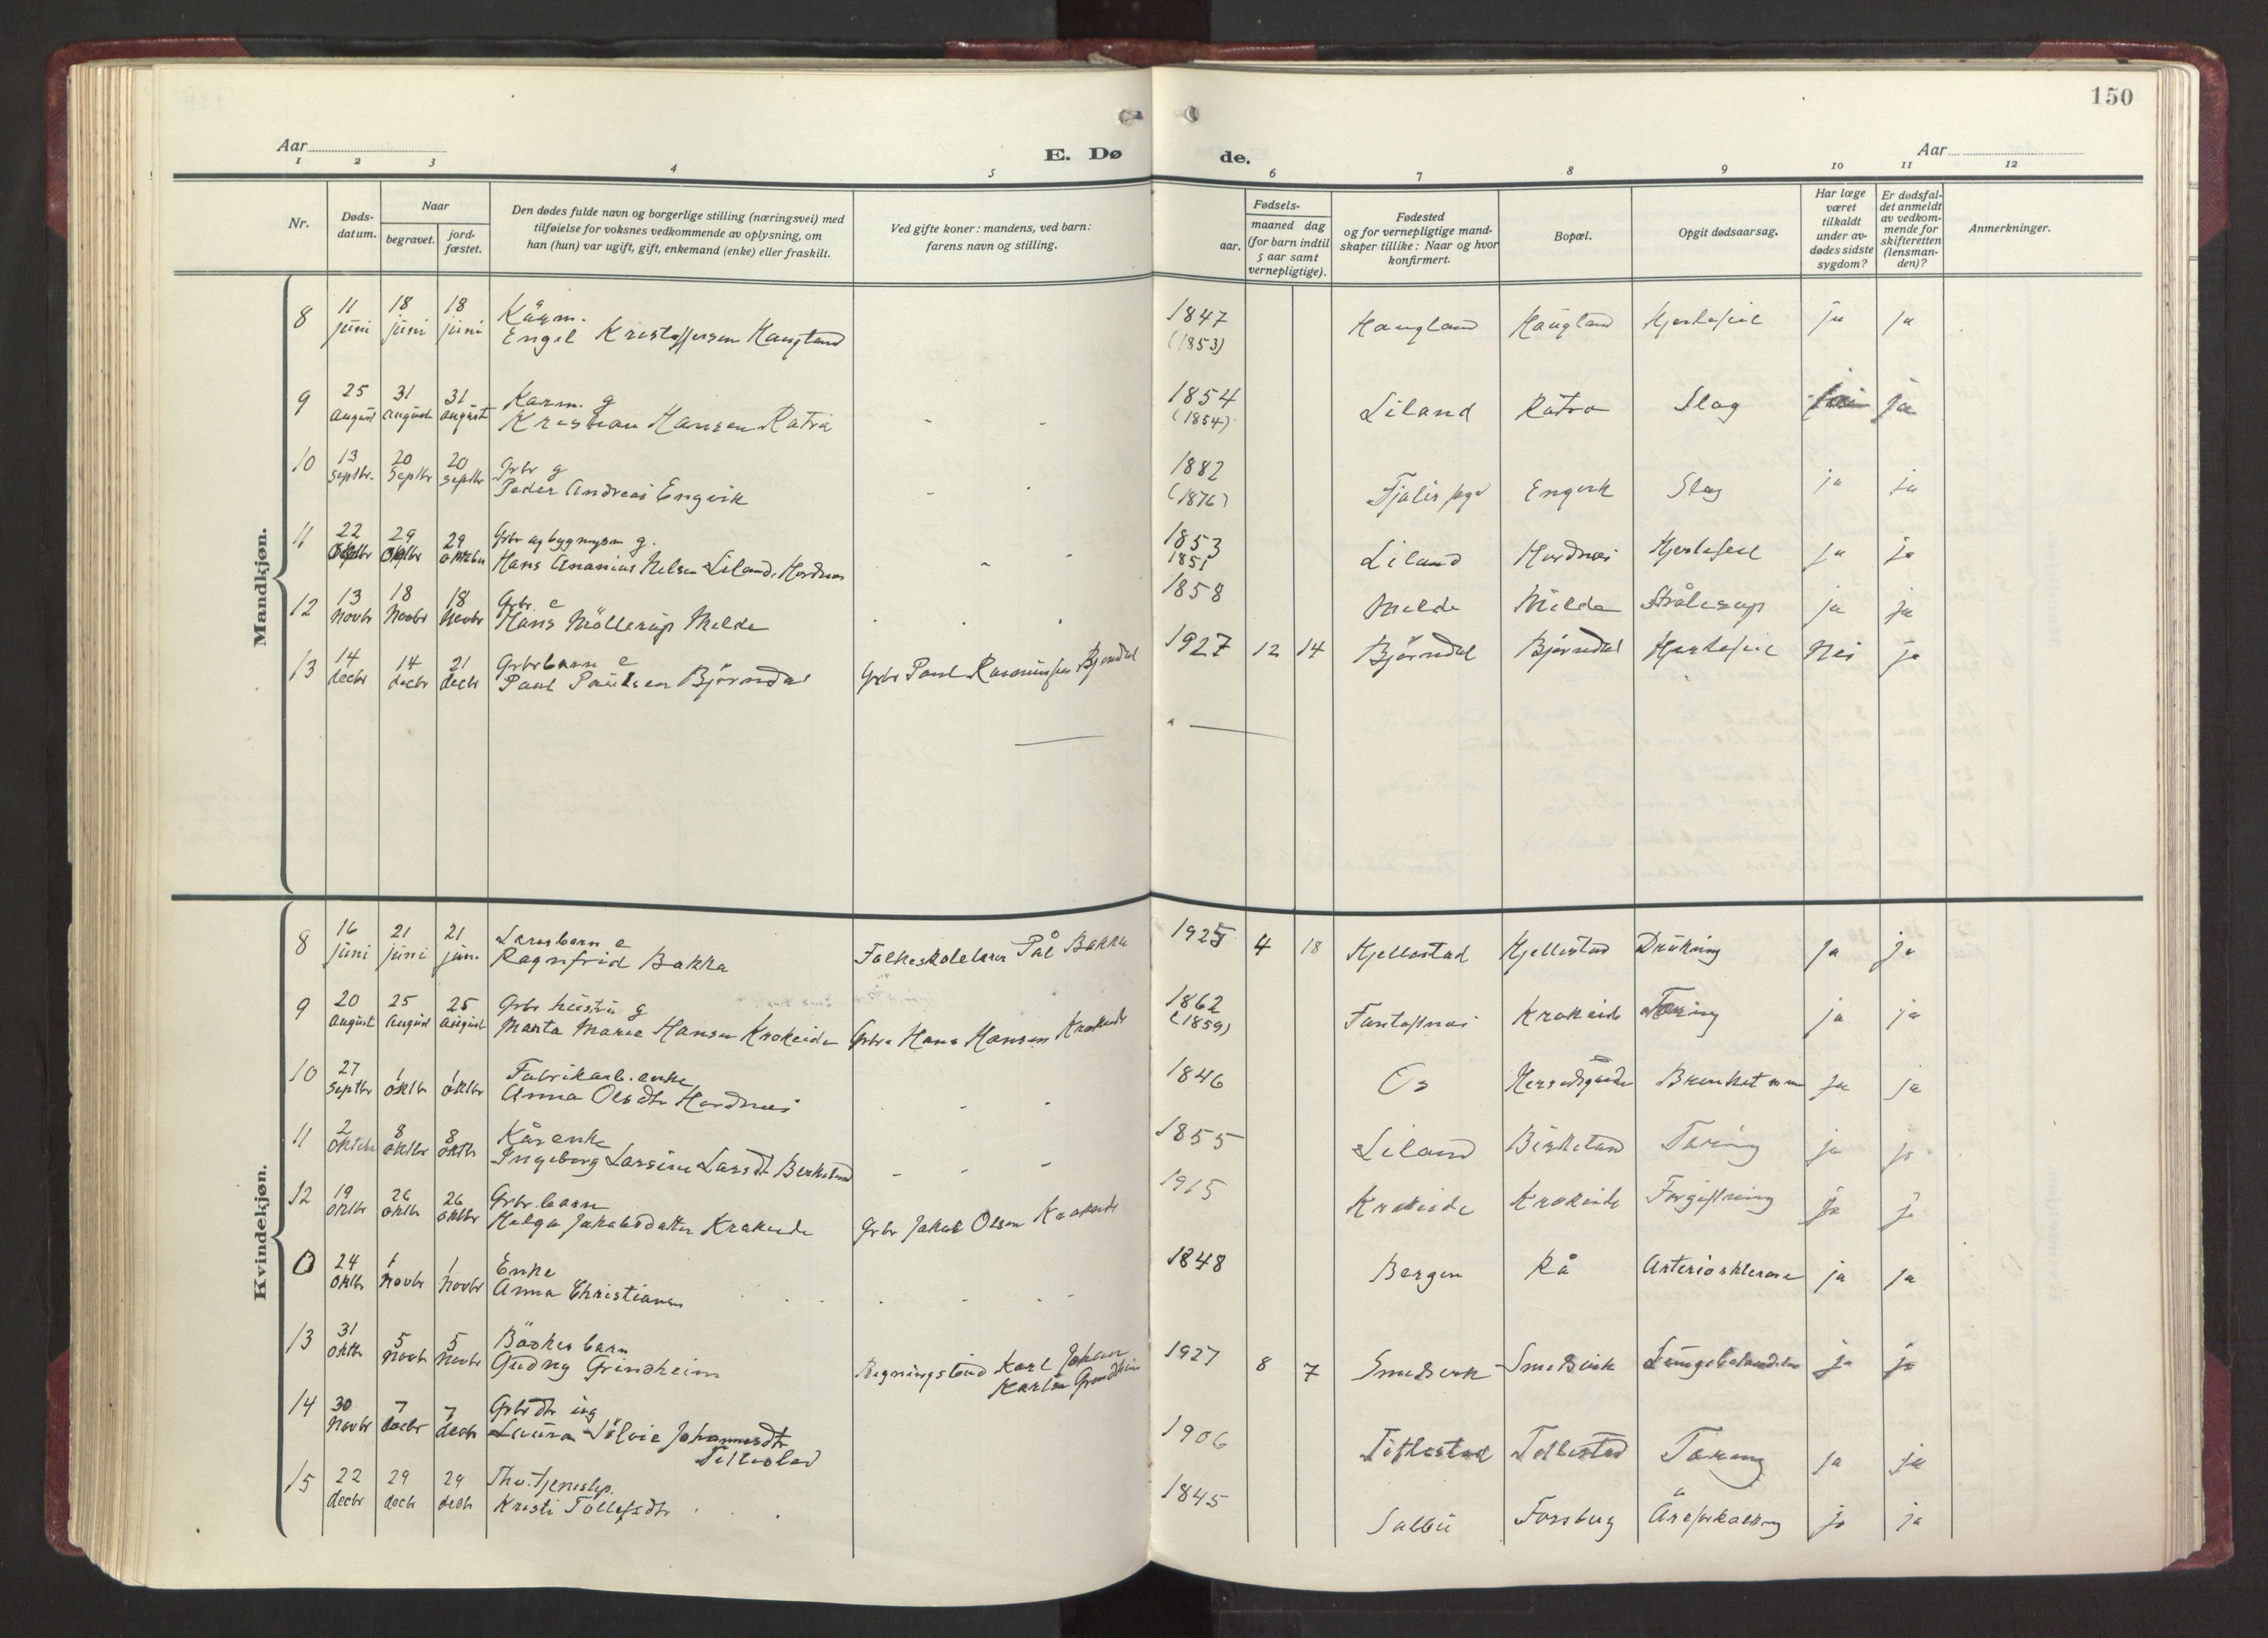 150
Aar
Aar
E. Dø de.
1 2 3 4 5 6 7 8 9 10 11 12
Nr.
Døds-
datum.
Naar
begravet.
jord-
fæstet.
Den dødes fulde navn og borgerlige stilling (næringsvei) med
tilføielse for voksnes vedkommende av oplysning, om
han (hun) var ugift, gift, enkemand (enke) eller fraskilt.
Ved gifte koner: mandens, ved barn:
farens navn og stilling.
Fødsels-
aar.
maaned dag
(for barn indtil
5 aar samt
vernepligtige).
Fødested
og for vernepligtige mand-
skaper tillike: Naar og hvor
konfirmert.
Bopæl.
Opgit dødsaarsag.
Har læge
været
tilkaldt
under av-
dødes sidste
sygdom?
Er dødsfal-
det anmeldt
av vedkom-
mende for
skifteretten
(lensman-
den)?
Anmerkninger.
Mandkjøn.
8 11 18 18 Kårm. g 1847
juni juni juni Engel Kristoffersen Haugland (1853) Haugland Haugland Hjertefeil ja ja
9 25 31 31 Karm. g 1854
august august august Kristian Hansen Råtra (1854) Liland Råtra Slag ja
10 13 20 20 Grbr g 1882
septbr. septbr septbr Peder Andreas Engevik (1876) Engevik Slag ja ja
11 22 29 29 Grbr og bygmesm g. 1853
oktbr oktbr oktbr Hans Ananias Nilsen Liland, Hordnes 1851 Liland Hordnes Hjertefeil ja ja
12 13 18 18 Grbr. e 1858
Novbr Novbr Novbr Hans Möllerup Milde Milde Milde Strålesop ja ja
13 14 14 21 Grbrbarn e
decbr decbr decbr Paul Paulsen Björndal Grbr Paul Rasmussen Björndal 1927 12 14 Björndal Björndal Hjertefeil Nei ja
Kvindekjøn.
8 16 21 21 Lærerbarn e
juni juni juni Ragnfrid Bakka Folkeskolelærer Pål Bakka 1925 4 18 Kjellestad Kjellestad Drukning ja ja
9 20 25 25 Grbr hustru g 1862
august august august Marta Marie Hansen Krokeide Grbr. Hans Hansen Krokeide (1859) Fantoftnes Krokeide Tæring ja ja
10 27 1 1 Fabrikarb. enke 1846
septbr oktbr oktbr Anna Olsdtr Hordnes Os ja ja
11 2 8 8 Kårenke 1855
oktbr oktbr oktbr Ingeborg Larsine Larsdt Birkeland Liland Birkeland Tæring ja ja
12 19 26 26 Grbr. barn 1915
oktbr oktbr oktbr Helga Jakobsdatter Krokeide Grbr Jakob Olsen Krokeide Krokeide Krokeide Forgiftning ja ja
0 24 1 1 Enke 1848
oktbr Novbr Novbr Anna Christiansen Bergen Rå Arteriosklerose ja ja
13 31 5 5 Bödker barn
oktbr Novbr Novbr Gudny Grindheim Karl Johan
Karlsen Grindheim 1927 8 7 Smedsvik Smedsvik Lungebetændelse ja ja
14 30 7 7 Grbrdtr ug 1906
Novbr decbr decbr Laura Sölvie Johannesdtr
Titlestad Titlestad Titlestad Tæring ja ja
15 22 29 29 1845
decbr decbr decbr Kristi Tollefsdtr Salbu Forsbug Åreforkalkning ja ja